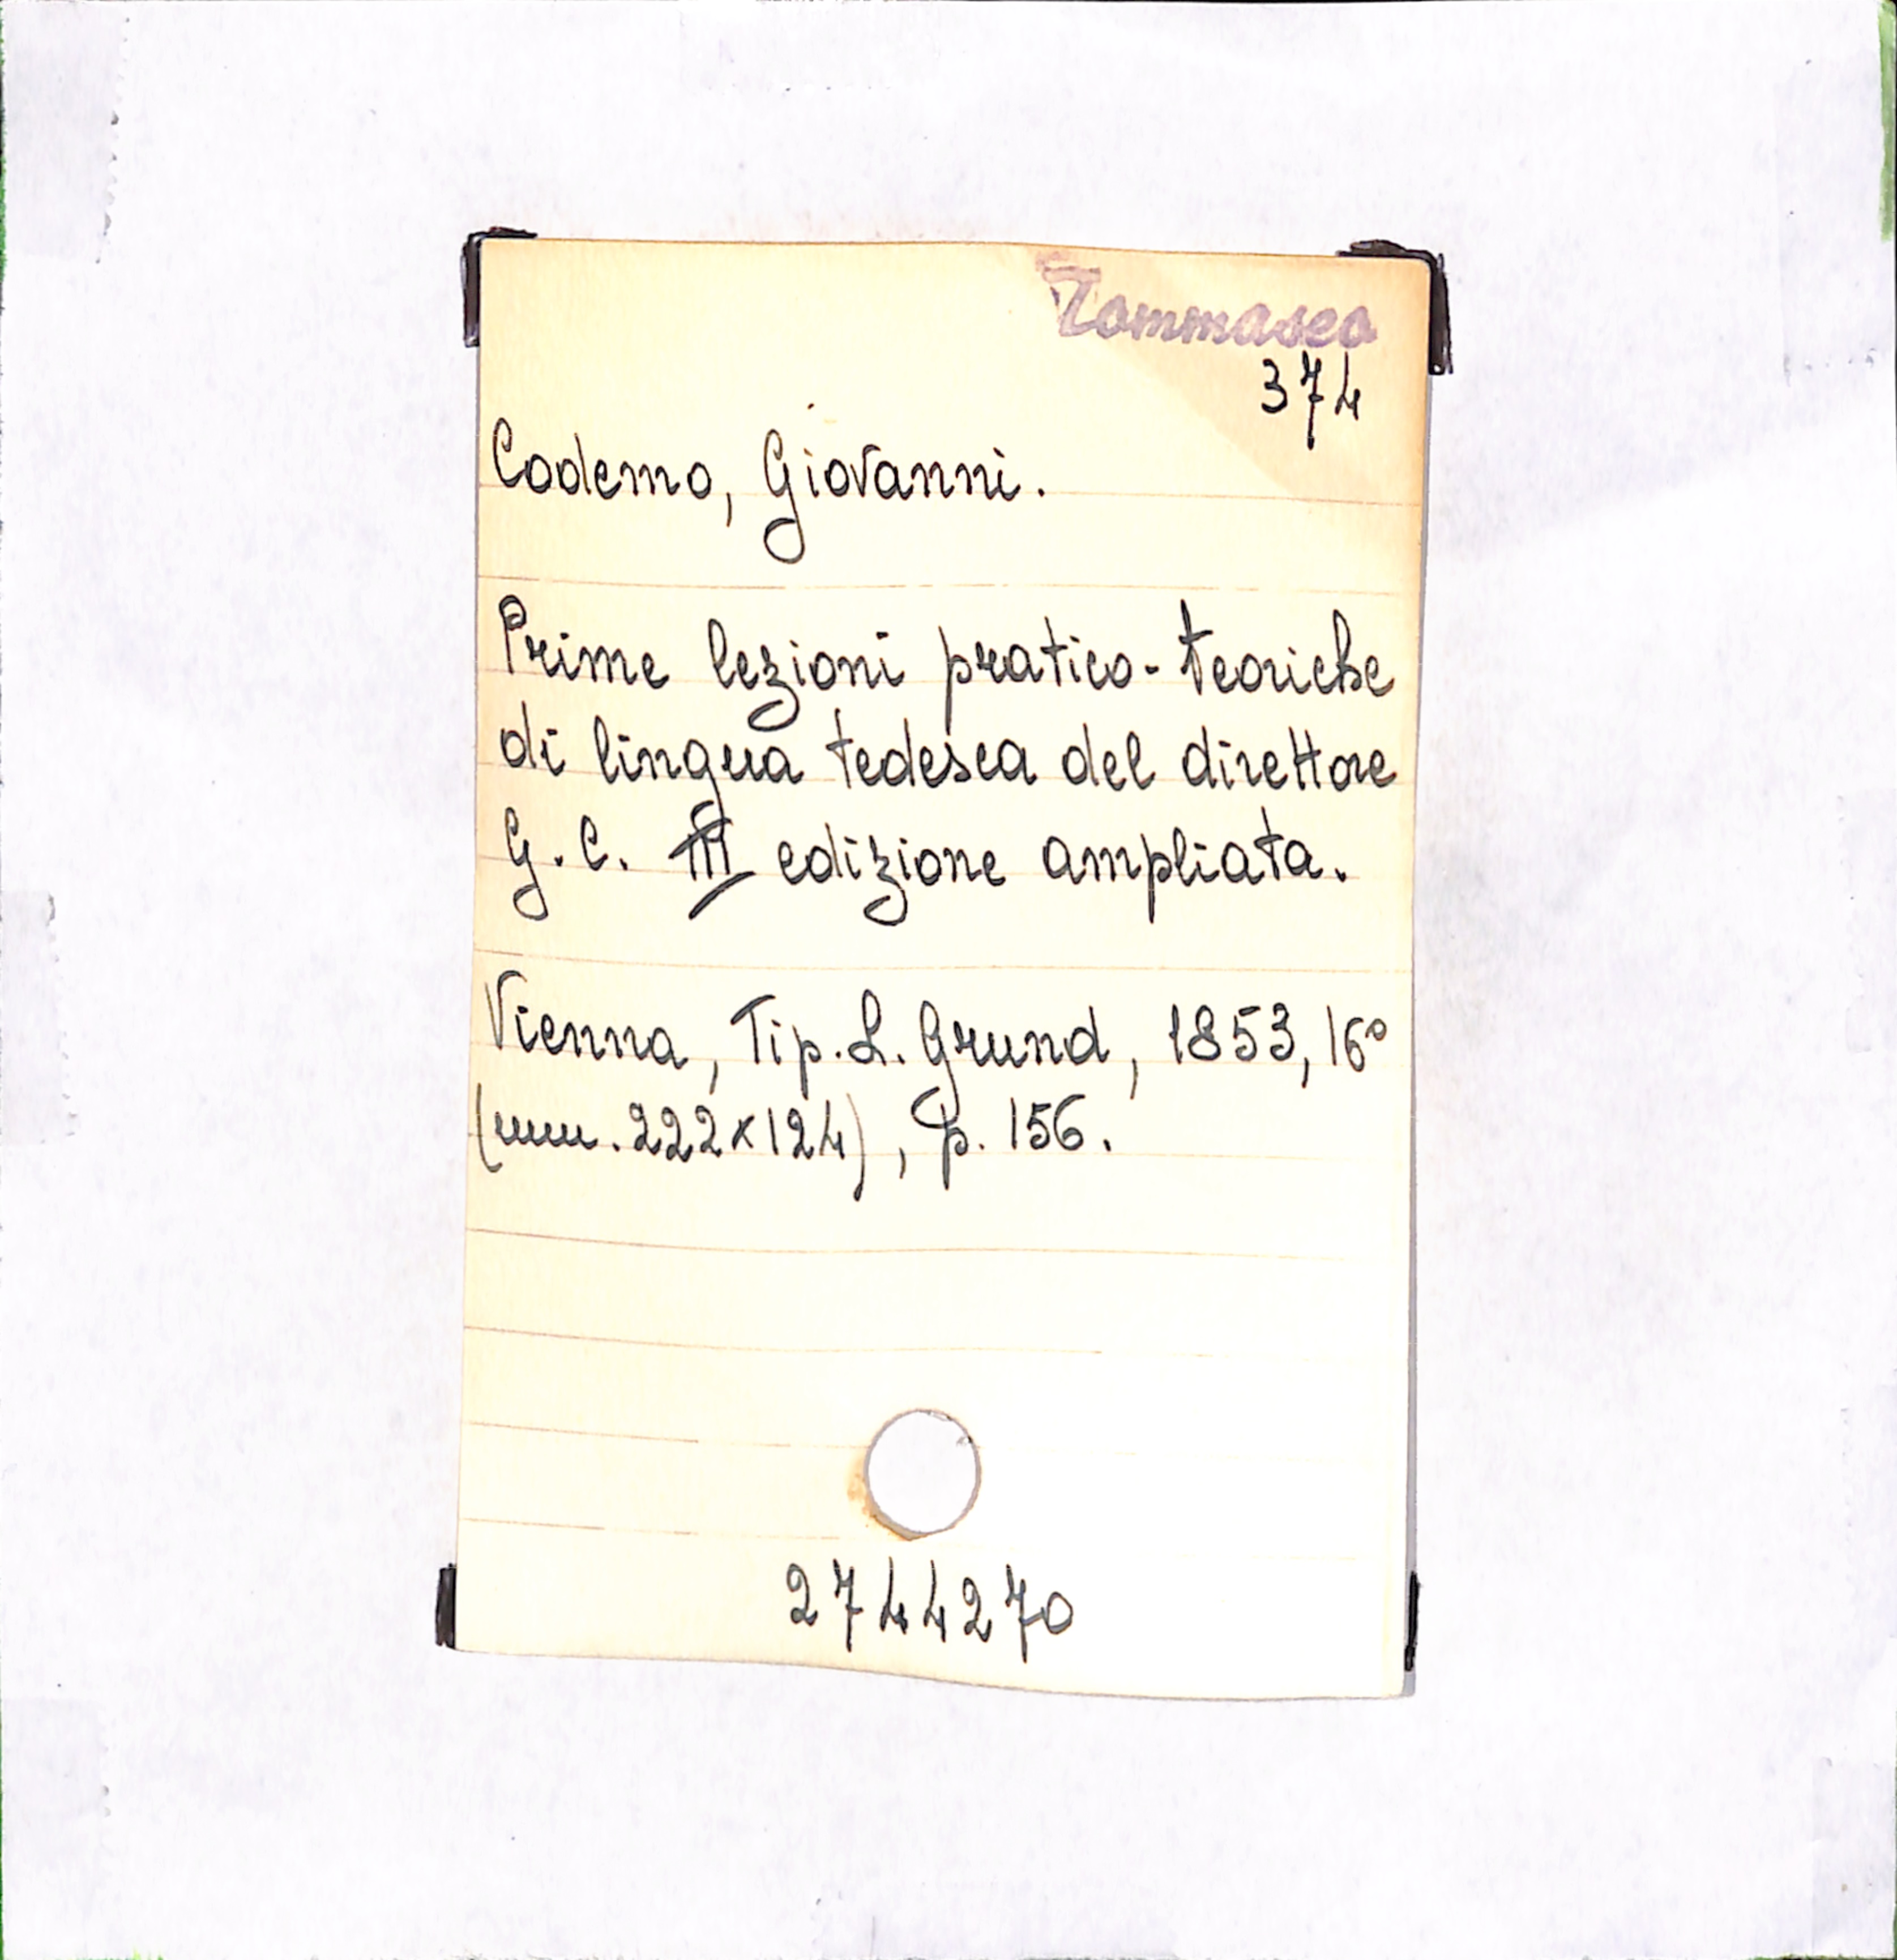 Tommaseo
374
Codemo, Giovanni.
Prime lezioni pratico-teoriche
di lingua tedesca del direttore
G. C. III edizione ampliata.
Vienna, Tip. L. Grund, 1853, 16°
(mm. 222x124), p. 156.
2744270